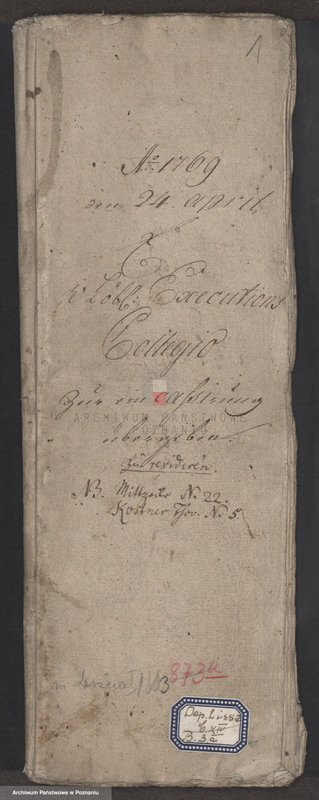 1
Ao 1769
den 24. April
E
Löbl: Executions
Collegio
zur ein caßirung
übergeben.
zu revidiren.
NB. N. 22.
Kostner Thor. N. 5.
ARCHIWUM PAŃSTWOWE
W POZNANIU
873a
Dep. Lissa
C. XII
B 3a
Archiwum Państwowe w Poznaniu